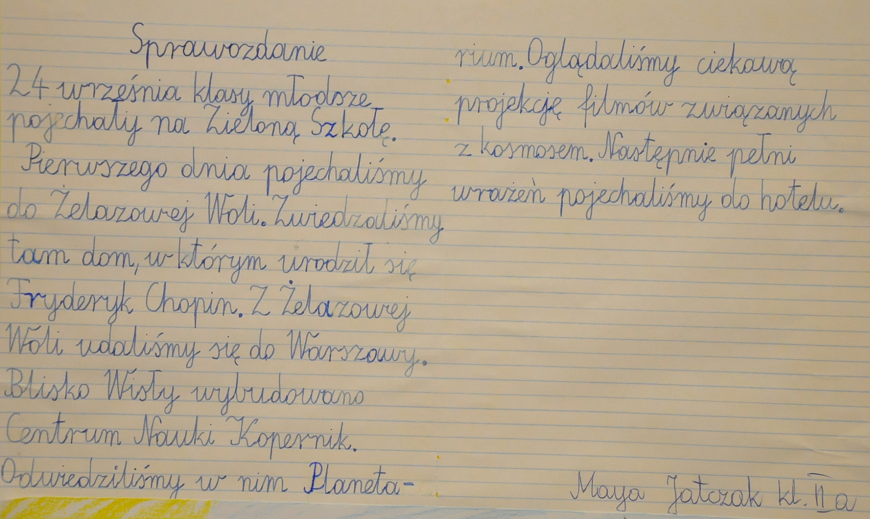 Sprawozdanie
24 września klasy młodsze
pojechały na Zieloną Szkołę.
Pierwszego dnia pojechaliśmy
do Żelazowej Woli. Zwiedzaliśmy
tam dom, w którym urodził się
Fryderyk Chopin. Z Żelazowej
Woli udaliśmy się do Warszawy.
Blisko Wisły wybudowano
Centrum Nauki Kopernik.
Odwiedziliśmy w nim Planeta-
rium. Oglądaliśmy ciekawą
projekcję filmów związanych
z kosmosem. Następnie pełni
wrażeń pojechaliśmy do hotelu.
Maya Jatczak kl. II a